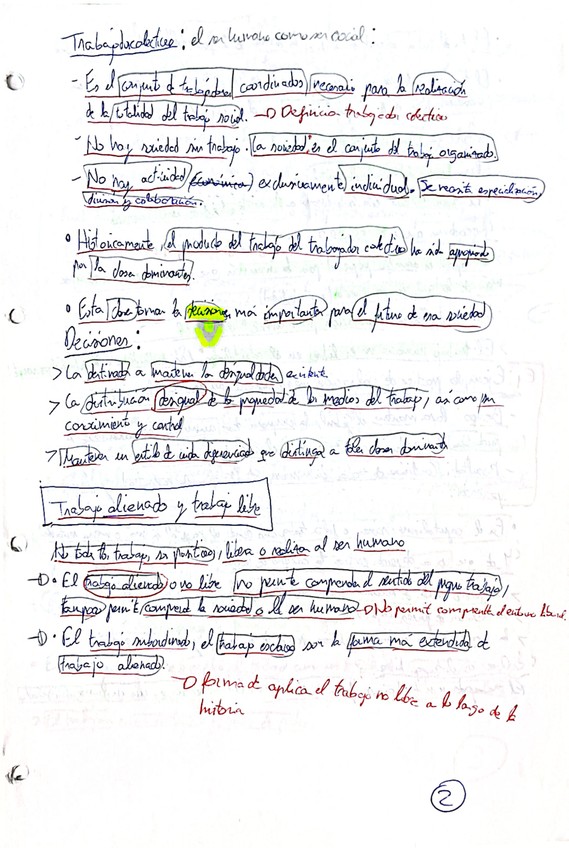 Trabajador colectivo: el ser humano como ser social:
- Es el conjunto de trabajadores coordinados necesario para la realización
de la totalidad del trabajo social. → Definición trabajador colectivo
- No hay sociedad sin trabajo. La sociedad es el conjunto del trabajo organizado.
- No hay actividad (económica) exclusivamente individual. Se necesita especialización,
división y colaboración.
• Históricamente, el producto del trabajo del trabajador colectivo ha sido apropiado
por la clase dominante.
• Esta clase toman las decisiones más importantes para el futuro de esa sociedad
Decisiones:
> La destinada a mantener las desigualdades existente
> La distribución desigual de la propiedad de los medios del trabajo, así como su
conocimiento y control
> Mantener un estilo de vida diferenciado que distinga a tales clases dominante
Trabajo alienado y trabajo libre
No todo trabajo, es positivo, libera o realiza al ser humano
→ • El trabajo alienado o no libre no permite comprender el sentido del propio trabajo,
tampoco permite comprender la sociedad o el ser humano → No permite comprender el entorno
→ • El trabajo subordinado, el trabajo esclavo son la forma más extendida de
trabajo alienado.
→ forma de aplicar el trabajo no libre a lo largo de la
historia
2